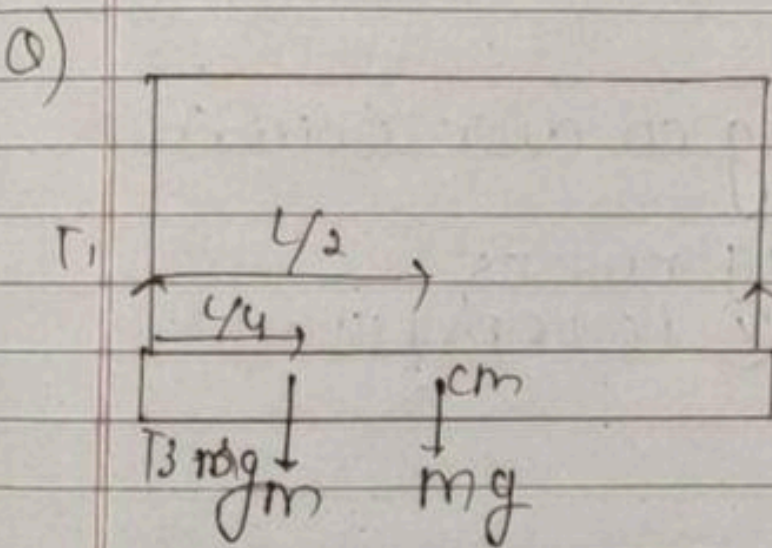 Q)
T₁
L/2
L/4
cm
mg
m
mg